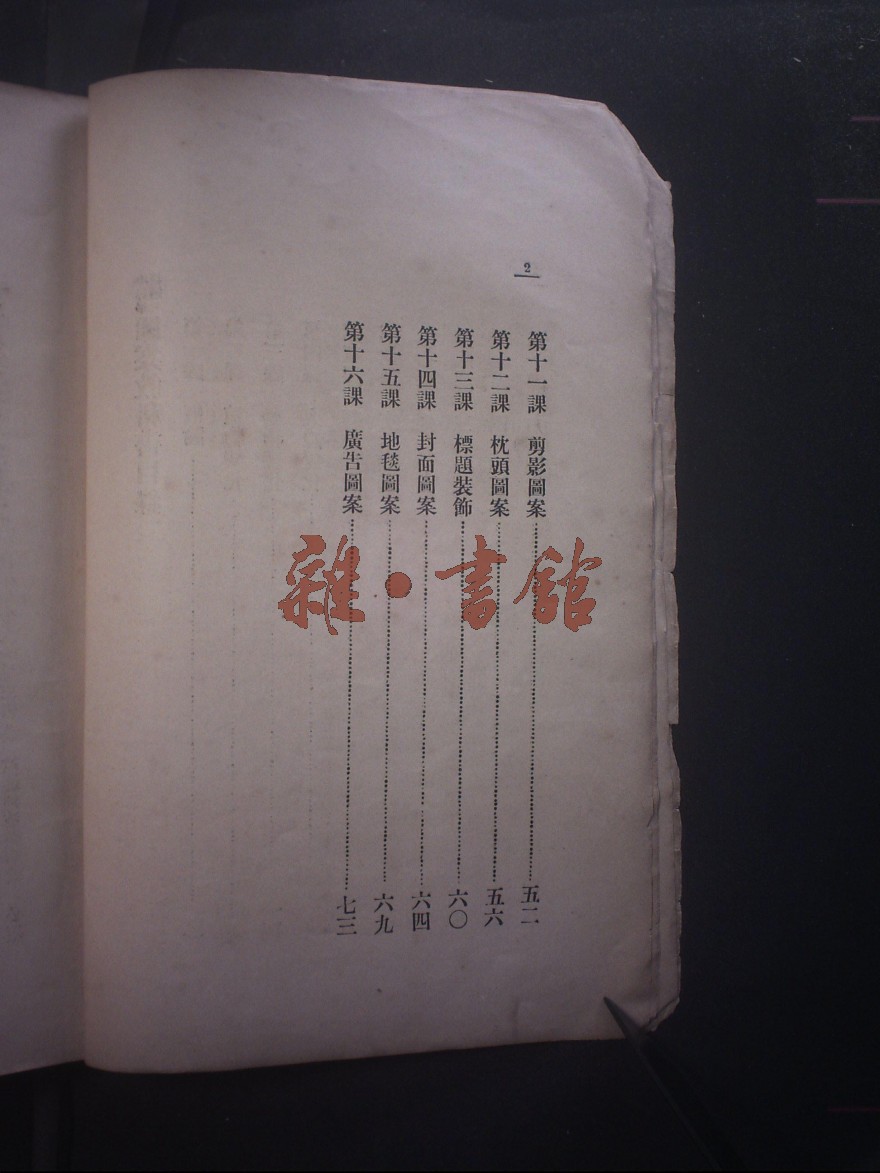 2
第十一課 剪影圖案……五二
第十二課 枕頭圖案……五六
第十三課 標題裝飾……六〇
第十四課 封面圖案……六四
第十五課 地毯圖案……六九
第十六課 廣告圖案……七三
雜·書館